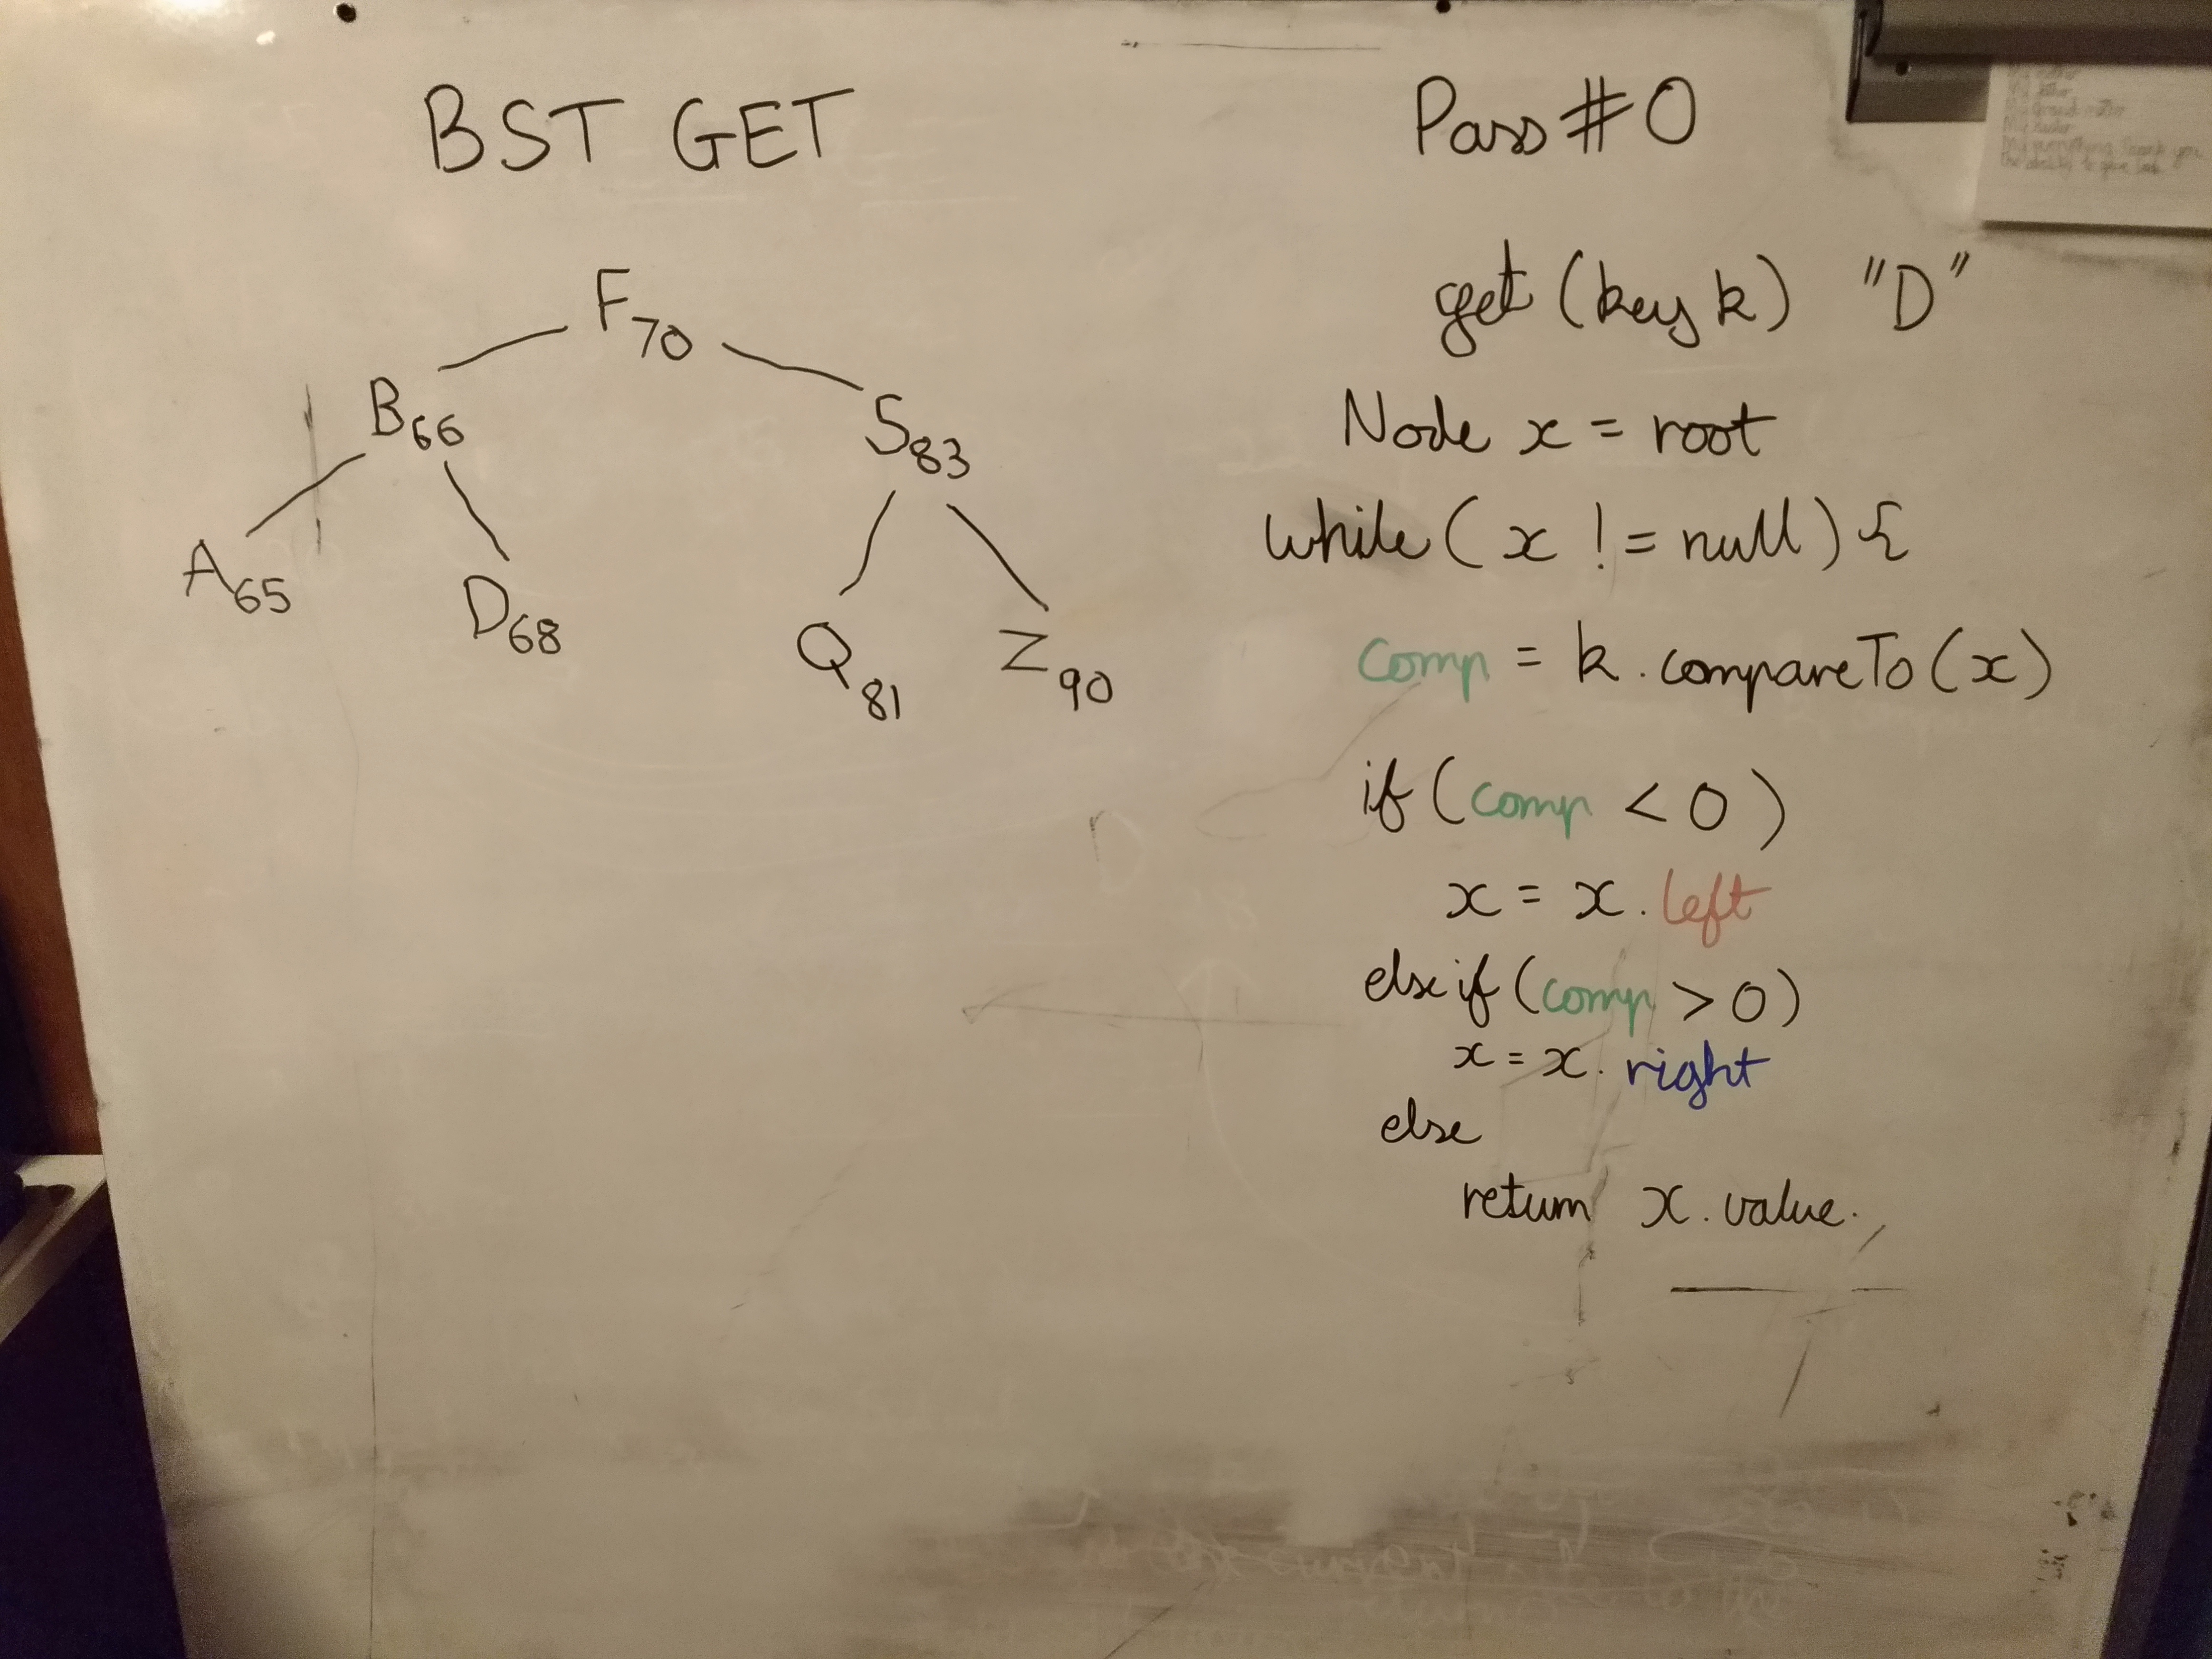 BST GET
F70
B66
S83
A65
D68
Q81
Z90
Pass #0
get (key k) "D"
Node x = root
while ( x != null ) {
comp = k . compareTo (x)
if ( comp < 0 )
x = x . left
else if ( comp > 0 )
x = x . right
else
return x . value .